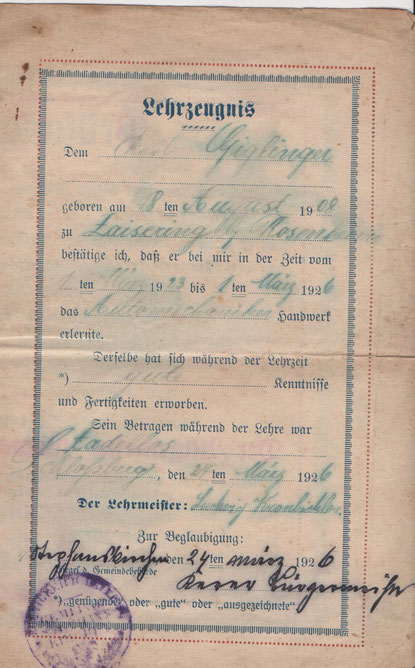 Lehrzeugnis
Dem Giglinger
geboren am 8 ten August 1908
zu Laisering Rosenheim
bestätige ich, daß er bei mir in der Zeit vom
ten 1923 bis 1 ten März 1926
das Handwerk
erlernte.
Derselbe hat sich während der Lehrzeit
*) gute Kenntnisse
und Fertigkeiten erworben.
Sein Betragen während der Lehre war
Tadellos
, den 24 ten März 1926
Der Lehrmeister: Ludwig
Zur Beglaubigung:
Stephanskirchen den 24 ten März 1926
Siegel d. Gemeindebehörde
Bürgermeister
*) „genügende“ oder „gute“ oder „ausgezeichnete“